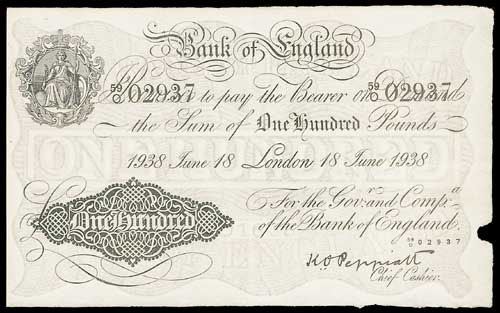 Bank of England
59/0 02937 to pay the Bearer on 59/0 02937
the Sum of One Hundred Pounds
1938 June 18 London 18 June 1938
For the Gov.r and Comp.a
of the Bank of England.
One Hundred
59/0 02937
K O Peppiatt
Chief Cashier.